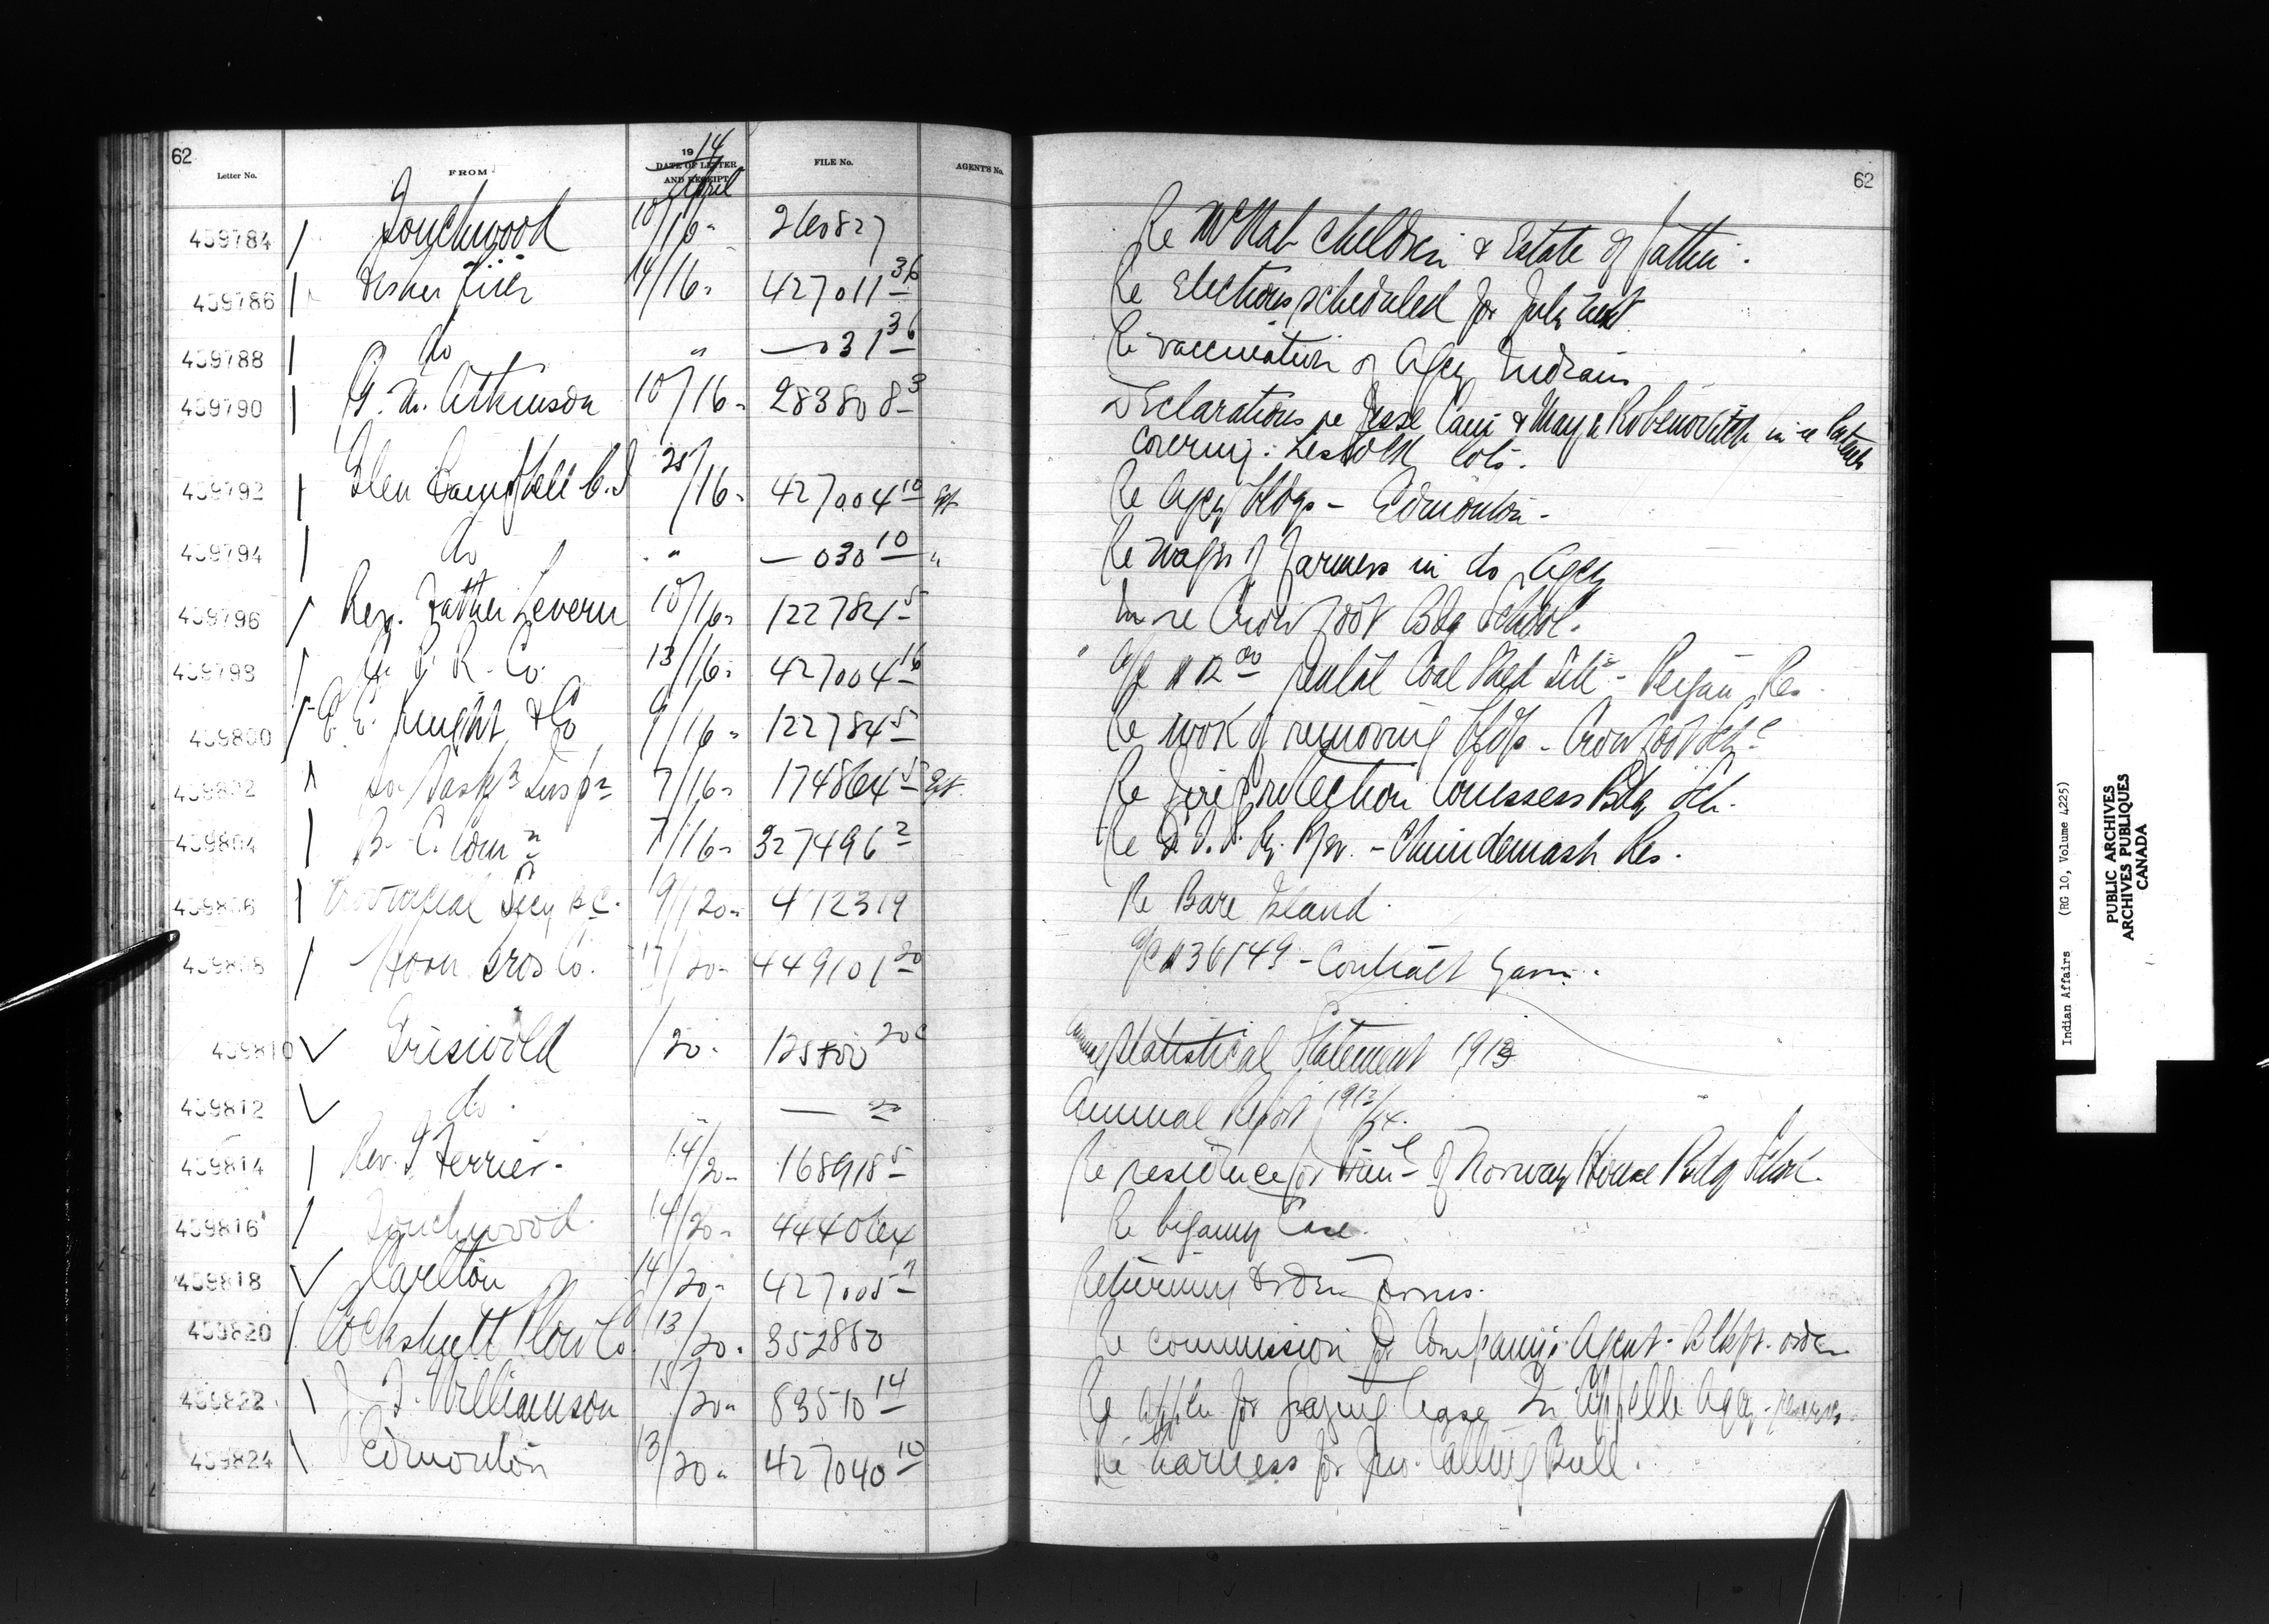 62
Letter No. FROM 1914 DATE OF LETTER AND RECEIPT April FILE No. AGENT'S No.
62
459784 Touchwood 10/16 260827 Re McNab children & Estate of father.
459786 Fisher River 14/16 427011 36 Re Elections scheduled for July next
459788 do " — 031 36 Re vaccination of Agcy Indians
459790 G. M. Atkinson 10/16 283808 3 Declarations re Jesse & May in re
covering: Lestock lots.
459792 Glen Campbell C.I 25/16 427004 10 Re Agcy bldgs - Edmonton -
459794 do " — 030 10 " Re wages of farmers in do Agcy
459796 Rev. Father Levern 10/16 122784 5 In re Crowfoot Bdg School.
459798 C. P. R. Co. 13/16 427004 16 a/c $12 00 rental Coal Shed Site - Peigan Res.
459800 & Co 9/16 122784 5 Re work of removing bldgs - Crowfoot Sch
459802 So. Sask n Insp r 7/16 174864 5 Re Fire Protection Cowessess Bdg Sch.
459804 B. C. Com n 7/16 327496 2 Re Ry. - Chuindemash Res.
459806 Provincial Secy B.C. 9/20 412319 Re Bare Island.
459808 Horn Bros Co. 17/20 449101 20 a/c $36149 - Contract
459810 Griswold /20 20 Statistical Statement 1913
459812 do. " — Annual Report 1913/14.
459814 Rev. T. Ferrier - 14/20 168918 5 Re residence for Prin l of Norway House Bdg School.
459816 Touchwood 14/20 444064 Re bigamy Case.
459818 Carlton 14/20 427005 7 Returning Order Forms.
459820 Cockshutt Plow Co 13/20 352850 Re commission for Company's Agent - order
459822 J. F. Williamson 15/20 83510 14 Re appln for grazing lease Qu'Appelle Agcy - reserves.
459824 Edmonton 13/20 427040 10 Re harness for Jno. Calling Bull.
Indian Affairs (RG 10, Volume 4225)
PUBLIC ARCHIVES
ARCHIVES PUBLIQUES
CANADA